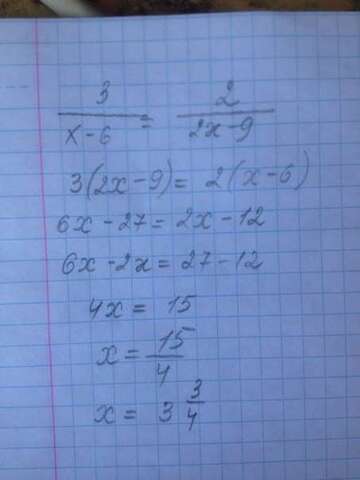 3/(x-6) = 2/(2x-9)
3(2x-9) = 2(x-6)
6x-27 = 2x-12
6x-2x = 27-12
4x = 15
x = 15/4
x = 3 3/4